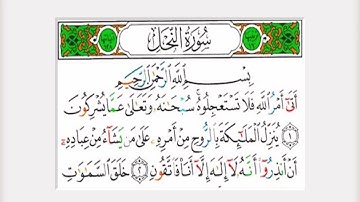 سُورَةُ النَّحْلِ
بِسْمِ اللَّهِ الرَّحْمَٰنِ الرَّحِيمِ
أَتَىٰٓ أَمْرُ ٱللَّهِ فَلَا تَسْتَعْجِلُوهُ ۚ سُبْحَٰنَهُۥ وَتَعَٰلَىٰ عَمَّا يُشْرِكُونَ
١ يُنَزِّلُ ٱلْمَلَٰٓئِكَةَ بِٱلرُّوحِ مِنْ أَمْرِهِۦ عَلَىٰ مَن يَشَآءُ مِنْ عِبَادِهِۦٓ
أَنْ أَنذِرُوٓا۟ أَنَّهُۥ لَآ إِلَٰهَ إِلَّآ أَنَا۠ فَٱتَّقُونِ ٢ خَلَقَ ٱلسَّمَٰوَٰتِ